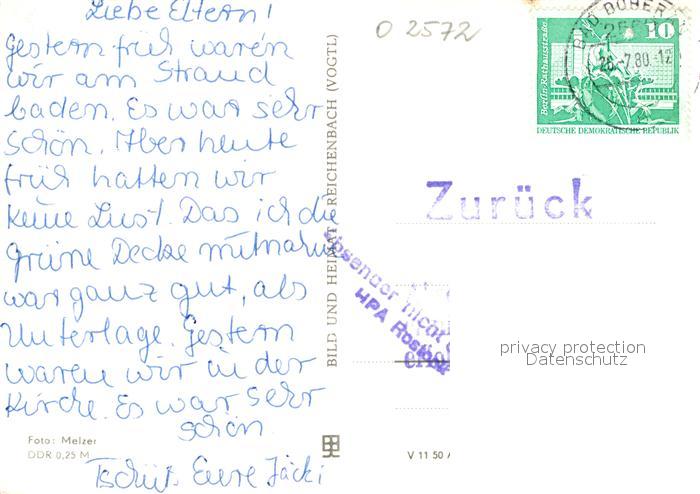 Liebe Eltern!
Gestern früh waren
wir am Strand
baden. Es war sehr
schön. Aber heute
früh hatten wir
keine Lust. Das ich die
grüne Decke mitnahm
war ganz gut, als
Unterlage. Gestern
waren wir in der
Kirche. Es war sehr
schön
Tschüß Eure Jácki
Foto: Melzer
DDR 0,25 M
BILD UND HEIMAT REICHENBACH (VOGTL)
V 11 50
O 2572
10
Berlin, Rathausstraße
DEUTSCHE DEMOKRATISCHE REPUBLIK
BAD DOBER
26.-7.80.-12
Zurück
Absender nicht
HPA Rostock
privacy protection
Datenschutz